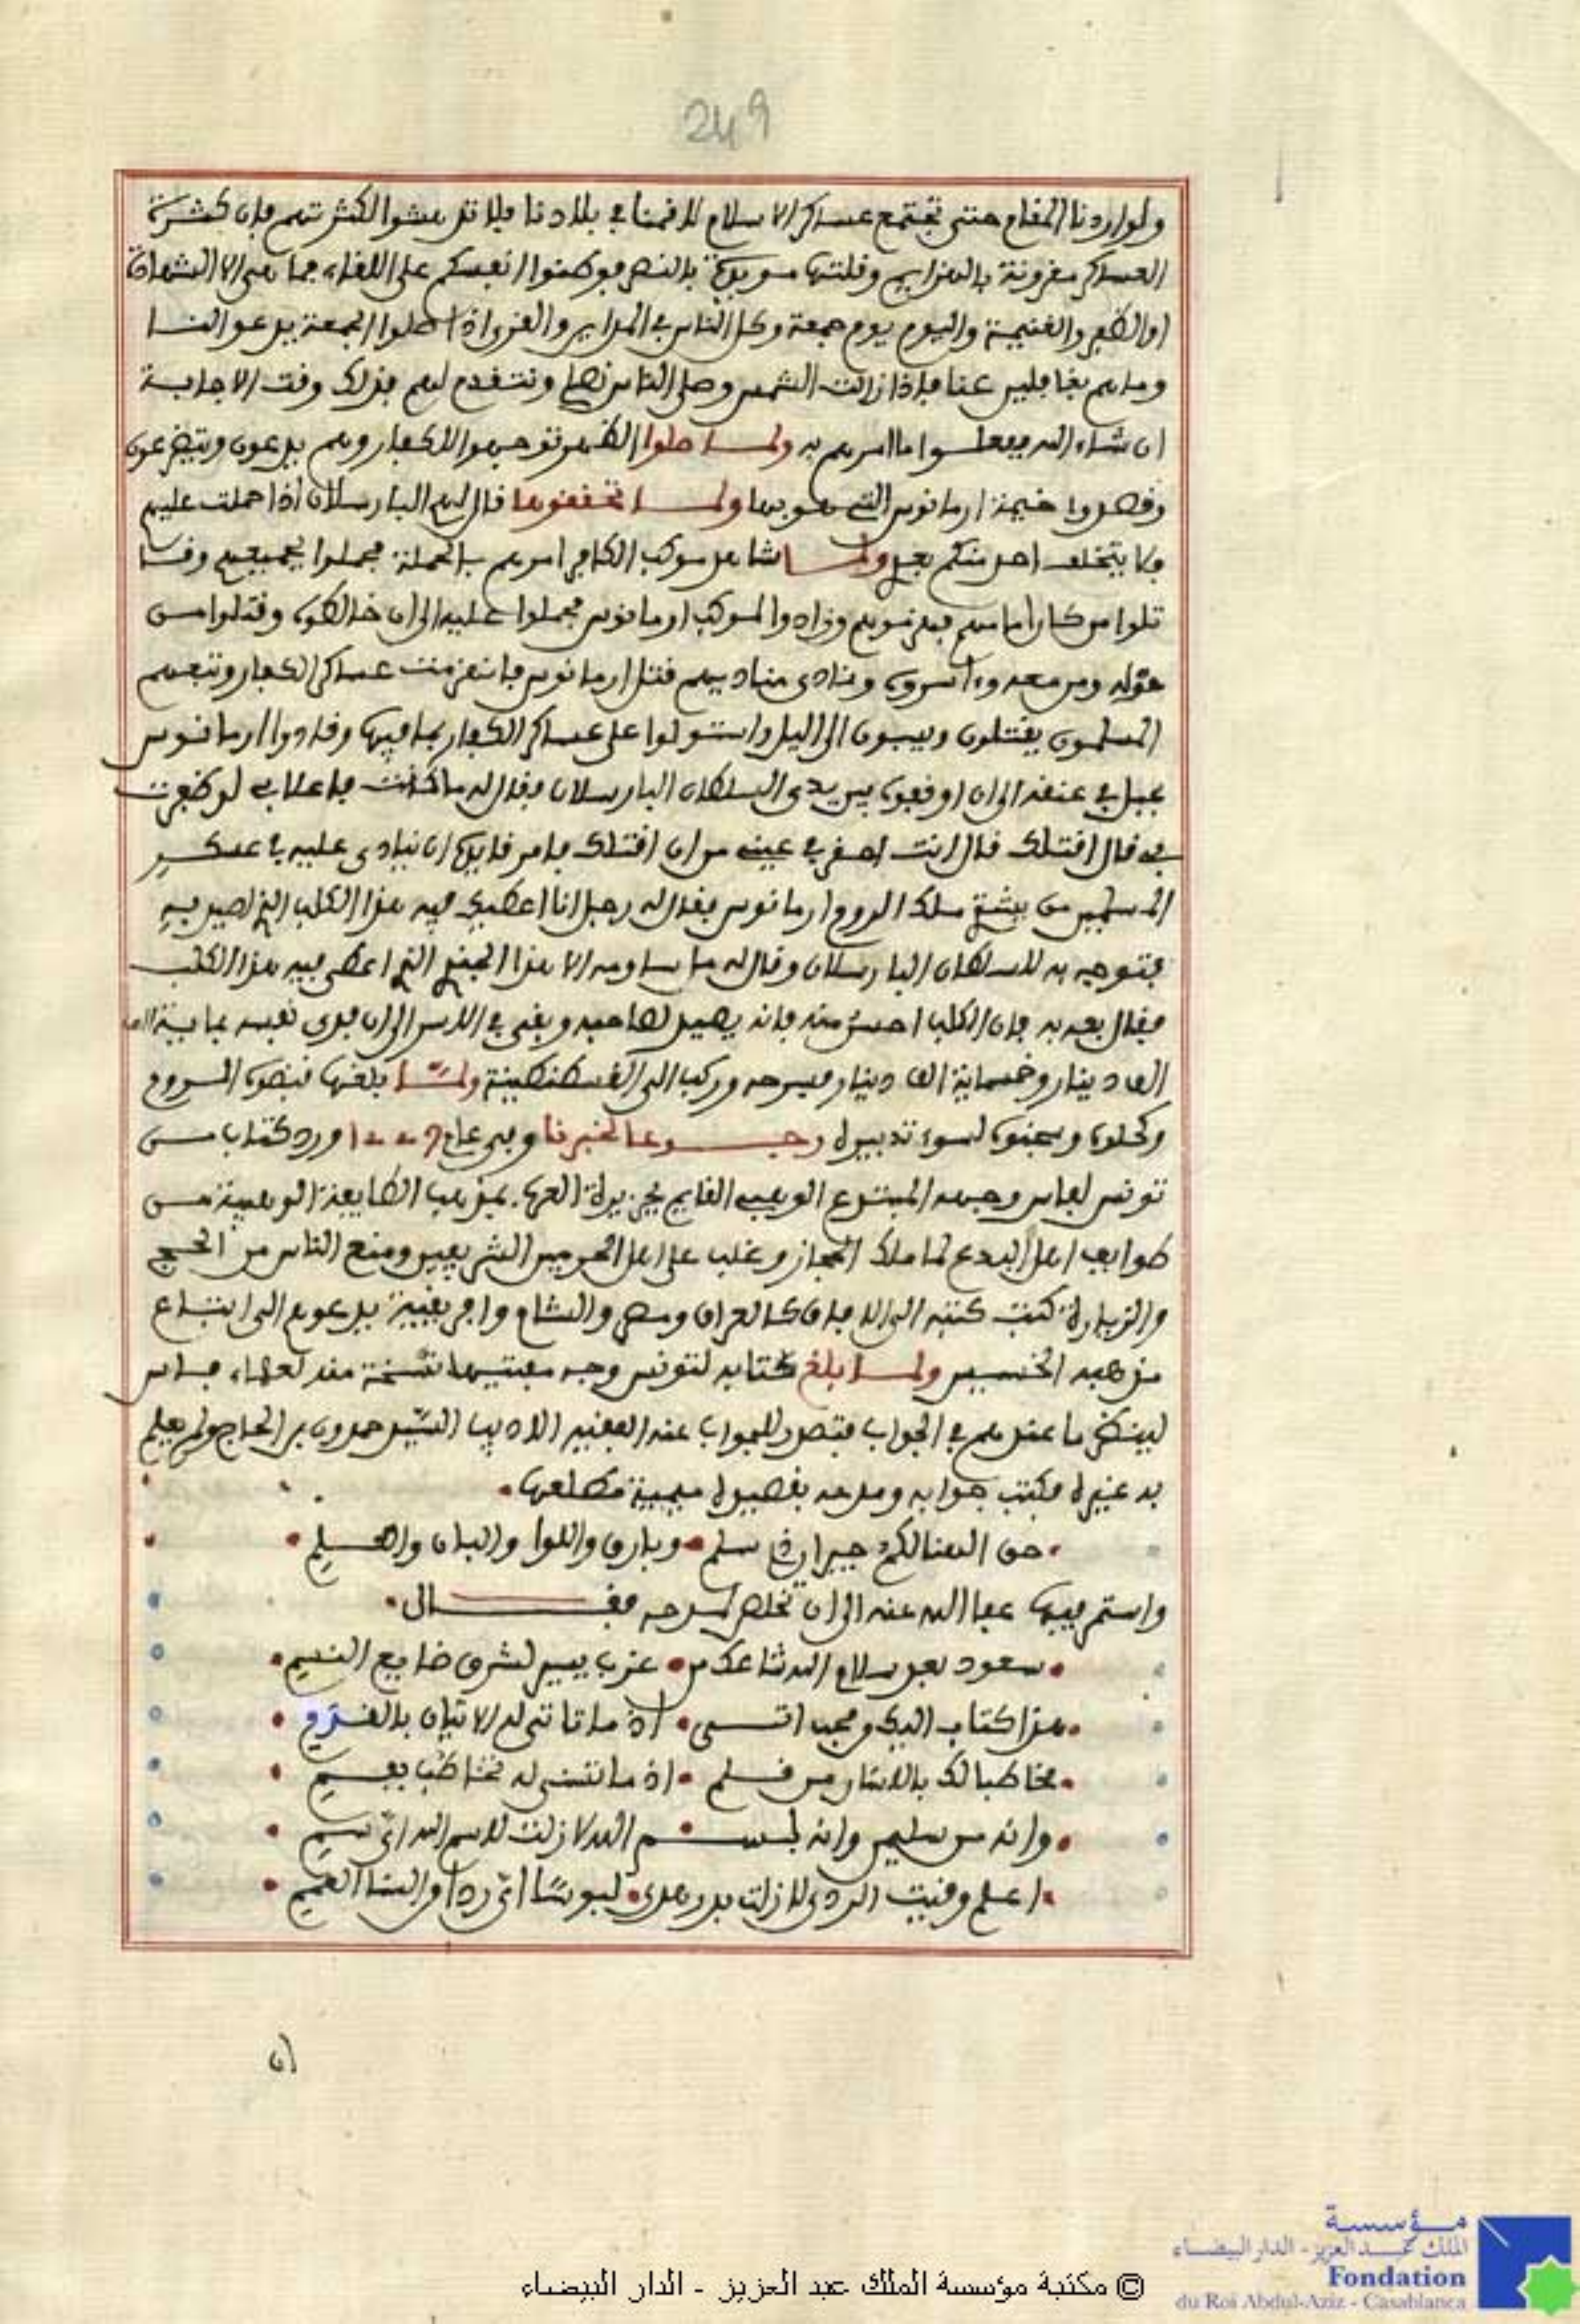 249
ولو اردنا المقام حتى تجتمع عساكر الاسلام لاقمنا في بلادنا فلا تدهشوا لكثرتهم فإن كثرة
العساكر مقرونة بالهزايم وقلتها مويدة بالنصر فوطنوا انفسكم على اللقاء فما هي الا الشهادة
او الظفر والغنيمة واليوم يوم جمعة وكل الناس في المداين والقرى اذا صلوا الجمعة يدعوا لنا
وما هم بغافلين عنا فاذا زالت الشمس وصلى الناس نصلي ونتقدم لهم فذلك وقت الاجابة
ان شاء الله ففعلوا ما امرهم به ولما صلوا الظهر توجهوا للكفار وهم يدعون ويتضرعون
وقصدوا خيمة ارمانوس التي هو بها ولما تحققوها قال لهم البارسلان اذا حملت عليهم
فلا يتخلف احد منكم بعدي ولما شاهد موكب الكافر امرهم بالحملة فحملوا بجميعهم وقا
تلوا من كان امامهم فهزموهم وزادوا لموكب ارمانوس فحملوا عليه الى ان خالطوه وقتلوا من
حوله ومن معه واسروه ونادى مناديهم قتل ارمانوس فانهزمت عساكر الكفار وتبعهم
المسلمون يقتلون ويسبون الى اليل واستولوا على عساكر الكفار بما فيها وقادوا ارمانوس
بحبل في عنقه الى ان اوقفوه بين يدي السلطان البارسلان فقال له ما كنت فاعلا بي لو ظفرت
بي قال اقتلك قال انت اصغر في عيني من ان اقتلك فامر قايده ان ينادى عليه في عسكر
المسلمين من يشتري ملك الروم ارمانوس فقال له رجل انا اعطيك فيه هذا الكلب الذي اصيد به
فتوجه به للسلطان البارسلان وقال له ما ساومه الا هذا الجندي الذي اعطى فيه هذا الكلب
فقال بعه به فان الكلب احسن منه فانه يصيد لصاحبه وبقي في الاسر الى ان فدى نفسه بماية الف
الف دينار وخمسماية الف دينار فسرحه وركب الى القسطنطينة ولما بلغها قبضوه الروم
وكحلوه وسجنوه لسوء تدبيره رجوعا لخبرنا وفي عام ورد كتاب من
تونس لفاس وجهه المبتدع الوهبي القايم بجزيرة العرب بمذهب الطايفة الوهبية من
طوايف اهل البدع لما ملك الحجاز وغلب على اهل الحرمين الشريفين ومنع الناس من الحج
والزيارة كتب كتبه الى الافاق كالعراق ومصر والشام وافريقية يدعوهم الى اتباع
مذهبه الخسيس ولما بلغ كتابه لتونس وجه مفتيها نسخة منه لعلماء فاس
لينظر ما عندهم في الجواب فتصدر للجواب عنه الفقيه الاديب السيد حمدون بن الحاج ولم يعلم
به غيره فكتب جوابه ومدحه بقصيدة ميمية مطلعها
حق الهنا لكم جيران ذي سلم وبارق واللوا والبان والعلم
واستمر فيها عفا الله عنه الى ان تخلص لمدحه فقال
سعود بعد سلام الله شاعك من غرب يسير لشرق ضايع النسيم
هذا كتاب اليك وهبا اتى اذ ما تاتى له الاتيان بالقدم
مخاطبا لك بالاشار من قلم اذ ما تسنى له تخاطب بفم
وانه من سليمن وانه لبسم الله لا زلت للاسم اله اي سم
اعلم وقيت الردى لا زلت بدر هدى لبوسا اي ردا والسنا العمم
ان
© مكتبة مؤسسة الملك عبد العزيز - الدار البيضاء
مؤسسة
الملك عبد العزيز - الدار البيضاء
Fondation
du Roi Abdul-Aziz - Casablanca